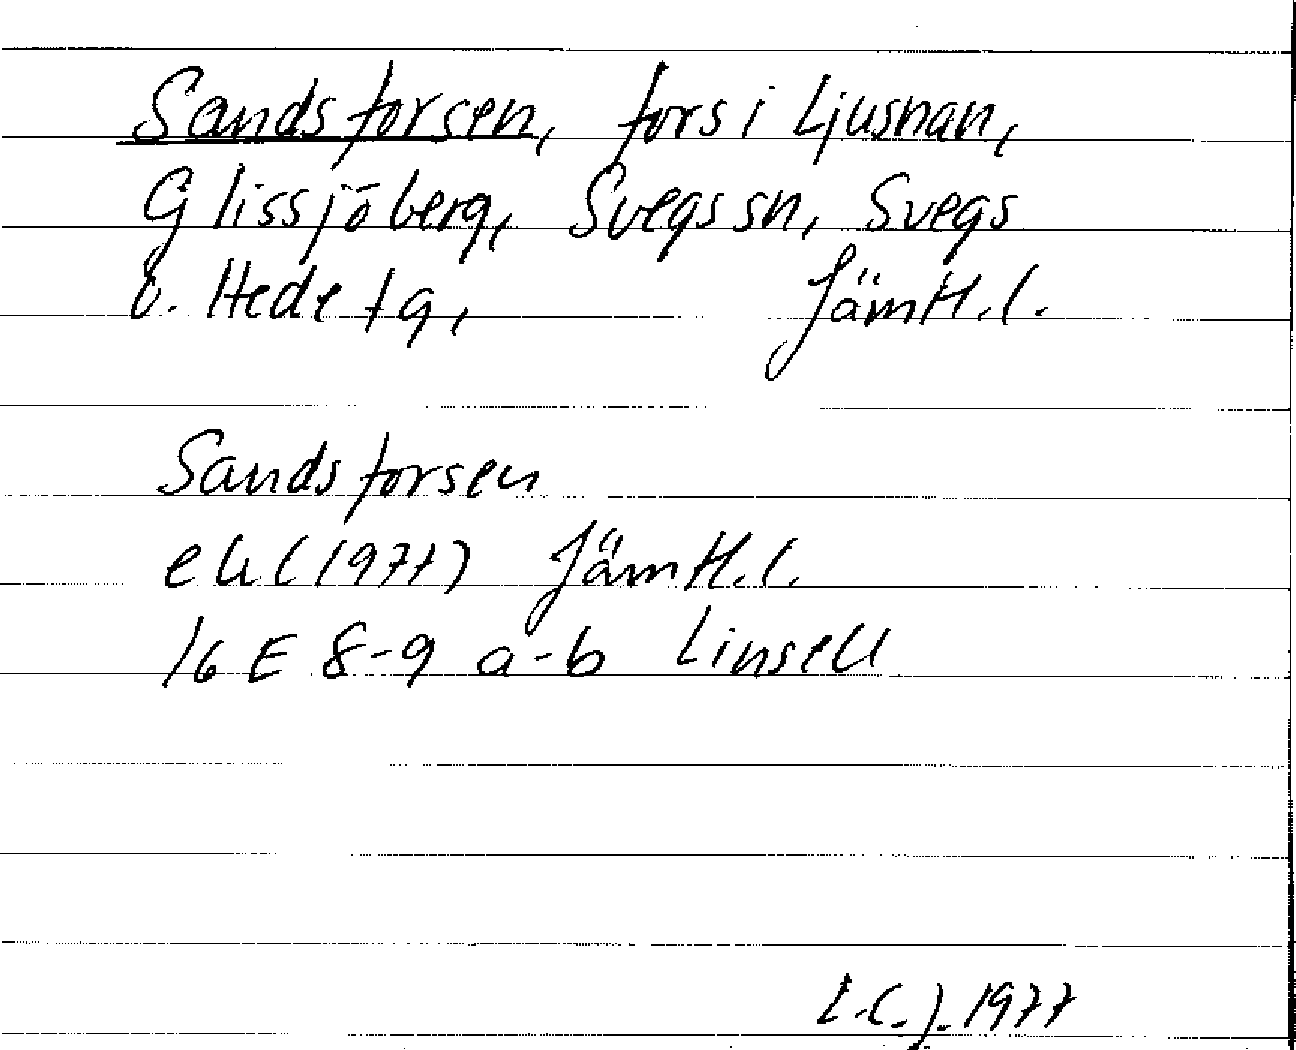 Sandsforsen, fors i Ljusnan,
Glissjöberg, Svegs sn, Svegs
o. Hede tg, Jämtl. l.
Sandsforsen
ek (1977) Jämtl. l.
16 E 8-9 a-b Linsell
L.C.J. 1977